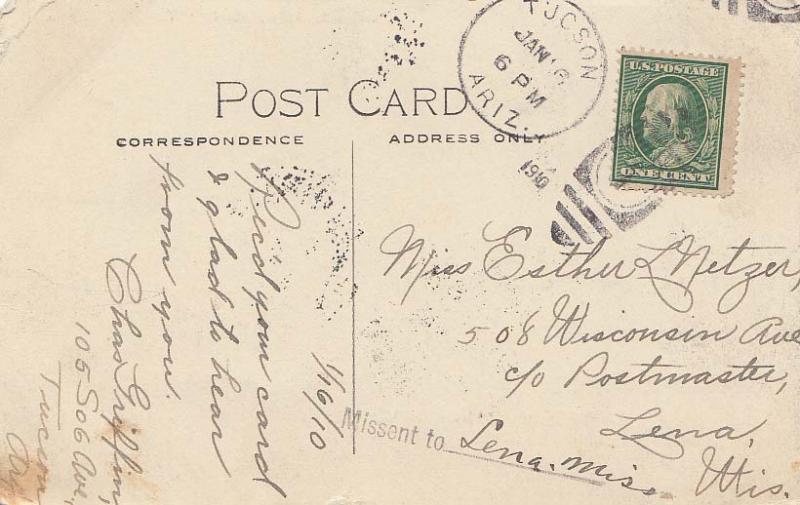 POST CARD
CORRESPONDENCE
ADDRESS ONLY
TUCSON
JAN 16
6 PM
ARIZ.
1910
U.S. POSTAGE
ONE CENT
1/16/10
Rec'd your card
& glad to hear
from you.
Chas Griffin,
105 So 6 Ave,
Tucson
Miss Esther L Metzer,
508 Wisconsin Ave
c/o Postmaster,
Lena,
Wis.
Missent to Lena, Miss